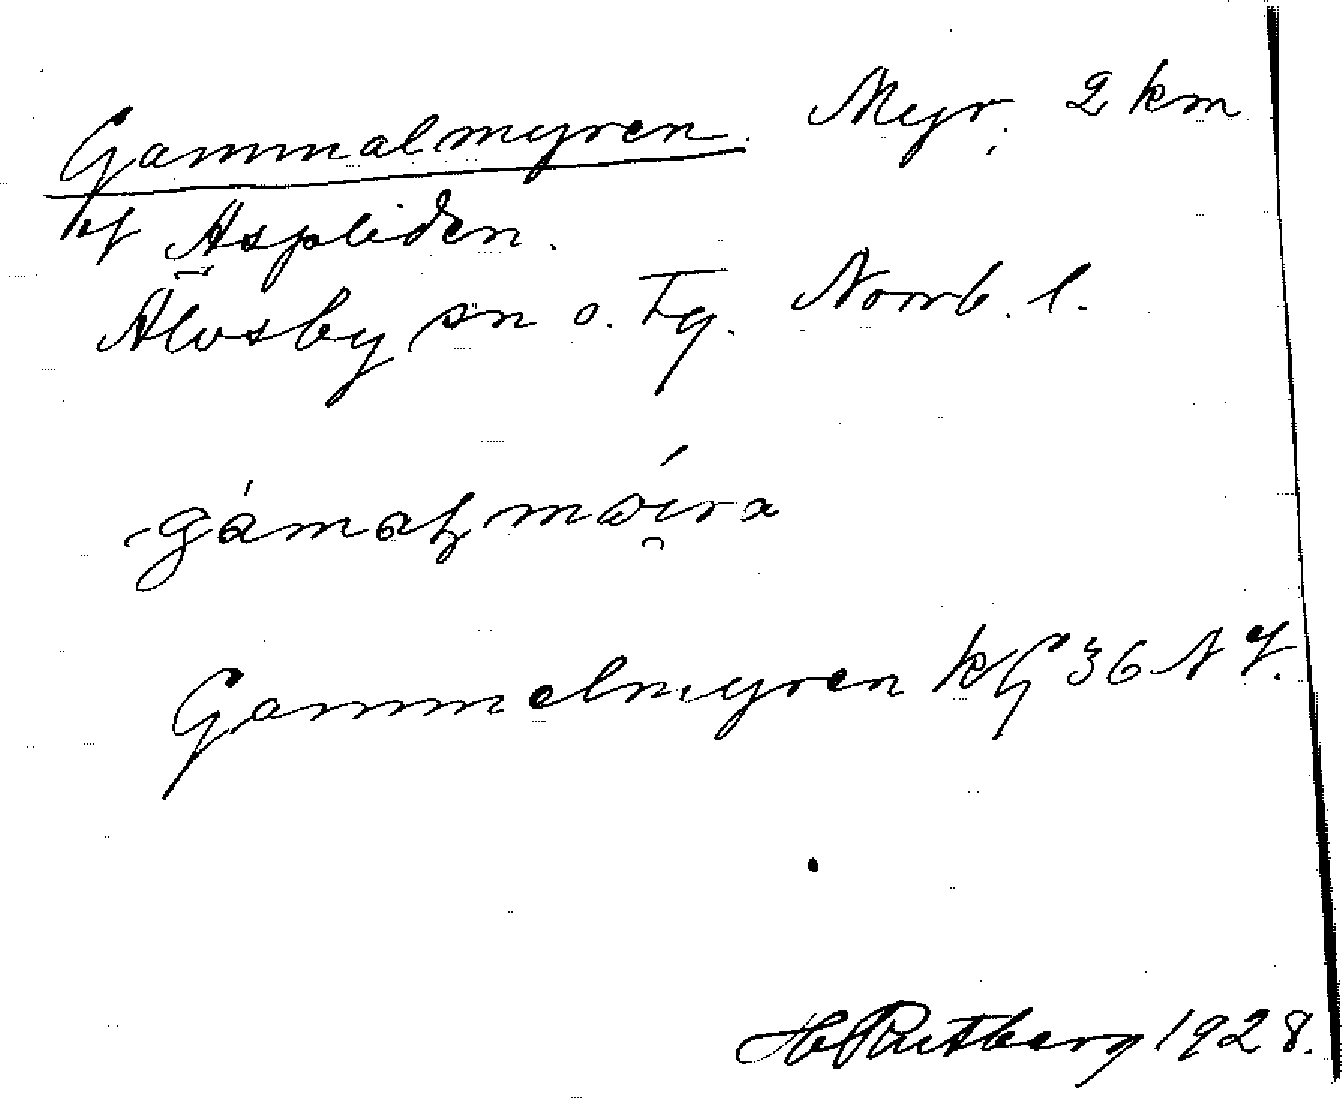 Gammalmyren. Myr, 2 km
Aspliden.
Älvsby sn o. Tg. Norrb. l.
Gammelmyren kG 36 NV.
1928.